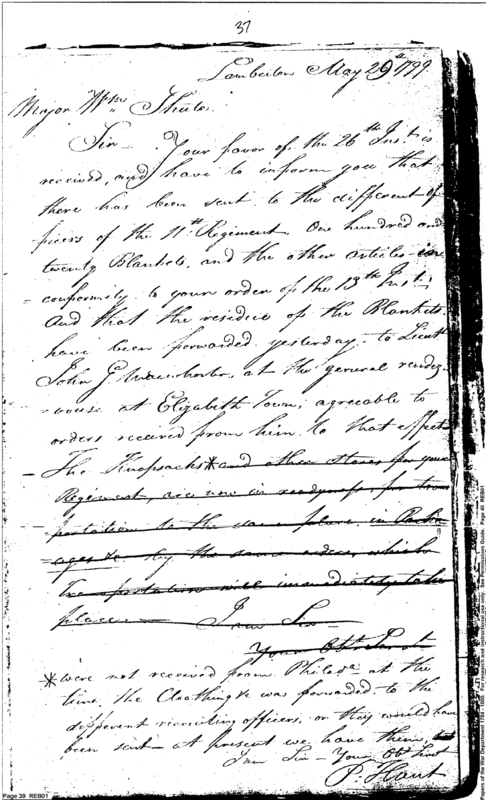 37
Lamberton May 29th 1799
Major Wm Shute.
Sir — Your favor of the 26th Inst. is
received, and have to inform you that
there has been sent to the different of-
ficers of the 11th Regiment One hundred and
twenty Blankets, and the other articles in
conformity to your order of the 13th Inst.;
And that the residue of the Blankets
have been forwarded yesterday to Lieutt
John G. at the general rendez-
vouse at Elizabeth Town; agreeable to
orders received from him to that effect
— The Knapsacks * and other stores for your
Regiment, are now in readyness, for trans
portation to the same place, in Pack
ages &c by the same orders, which
Transportation will immediately take
place — I am Sir —
Your Obt Servt
* were not received from Philada at the
time the Cloathing &c was forwarded to the
different recruiting officers, or they would have
been sent — at present we have them,
I am Sir — Your Obt Servt
P. Hunt
Page 39 REB01
Papers of the War Department 1784-1800. For research and instructional use only. See Permissions Guide. Page 40 REB01